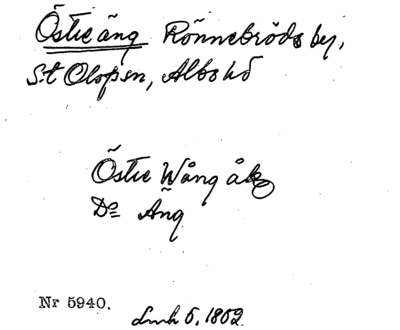 Östre äng Rönnebröds by,
S:t Olofsn, Albo hd
Östre Wång åk
D:o Äng
Nr 5940.
Lmh 5, 1802.